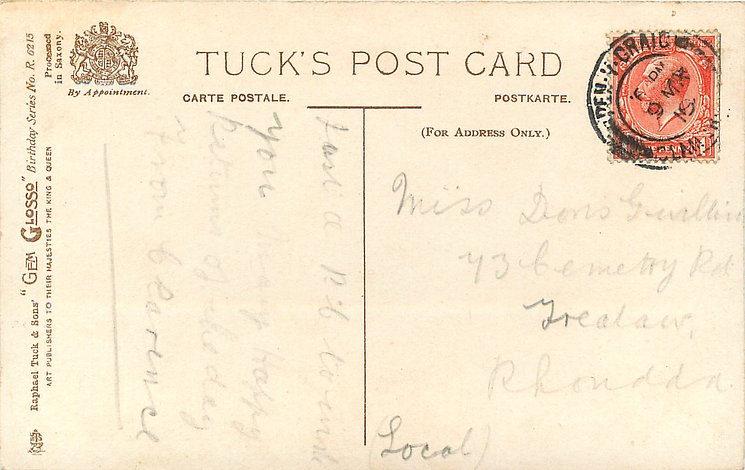 TUCK'S POST CARD
CARTE POSTALE. POSTKARTE.
(FOR ADDRESS ONLY.)
By Appointment.
Processed
in Saxony.
Raphael Tuck & Sons' "GEM GLOSSO" Birthday Series No. R. 6215
ART PUBLISHERS TO THEIR MAJESTIES THE KING & QUEEN
Just a P.C. to wish
you Many Happy
Returns of the day
From Clarence
Miss Doris
73 Cemetry Rd
Trealaw,
Rhondda
(Local)
CRAIG
9 MY